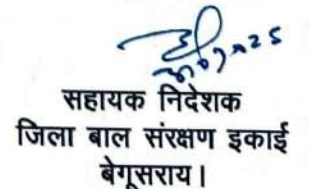 सहायक निदेशक
जिला बाल संरक्षण इकाई
बेगूसराय।